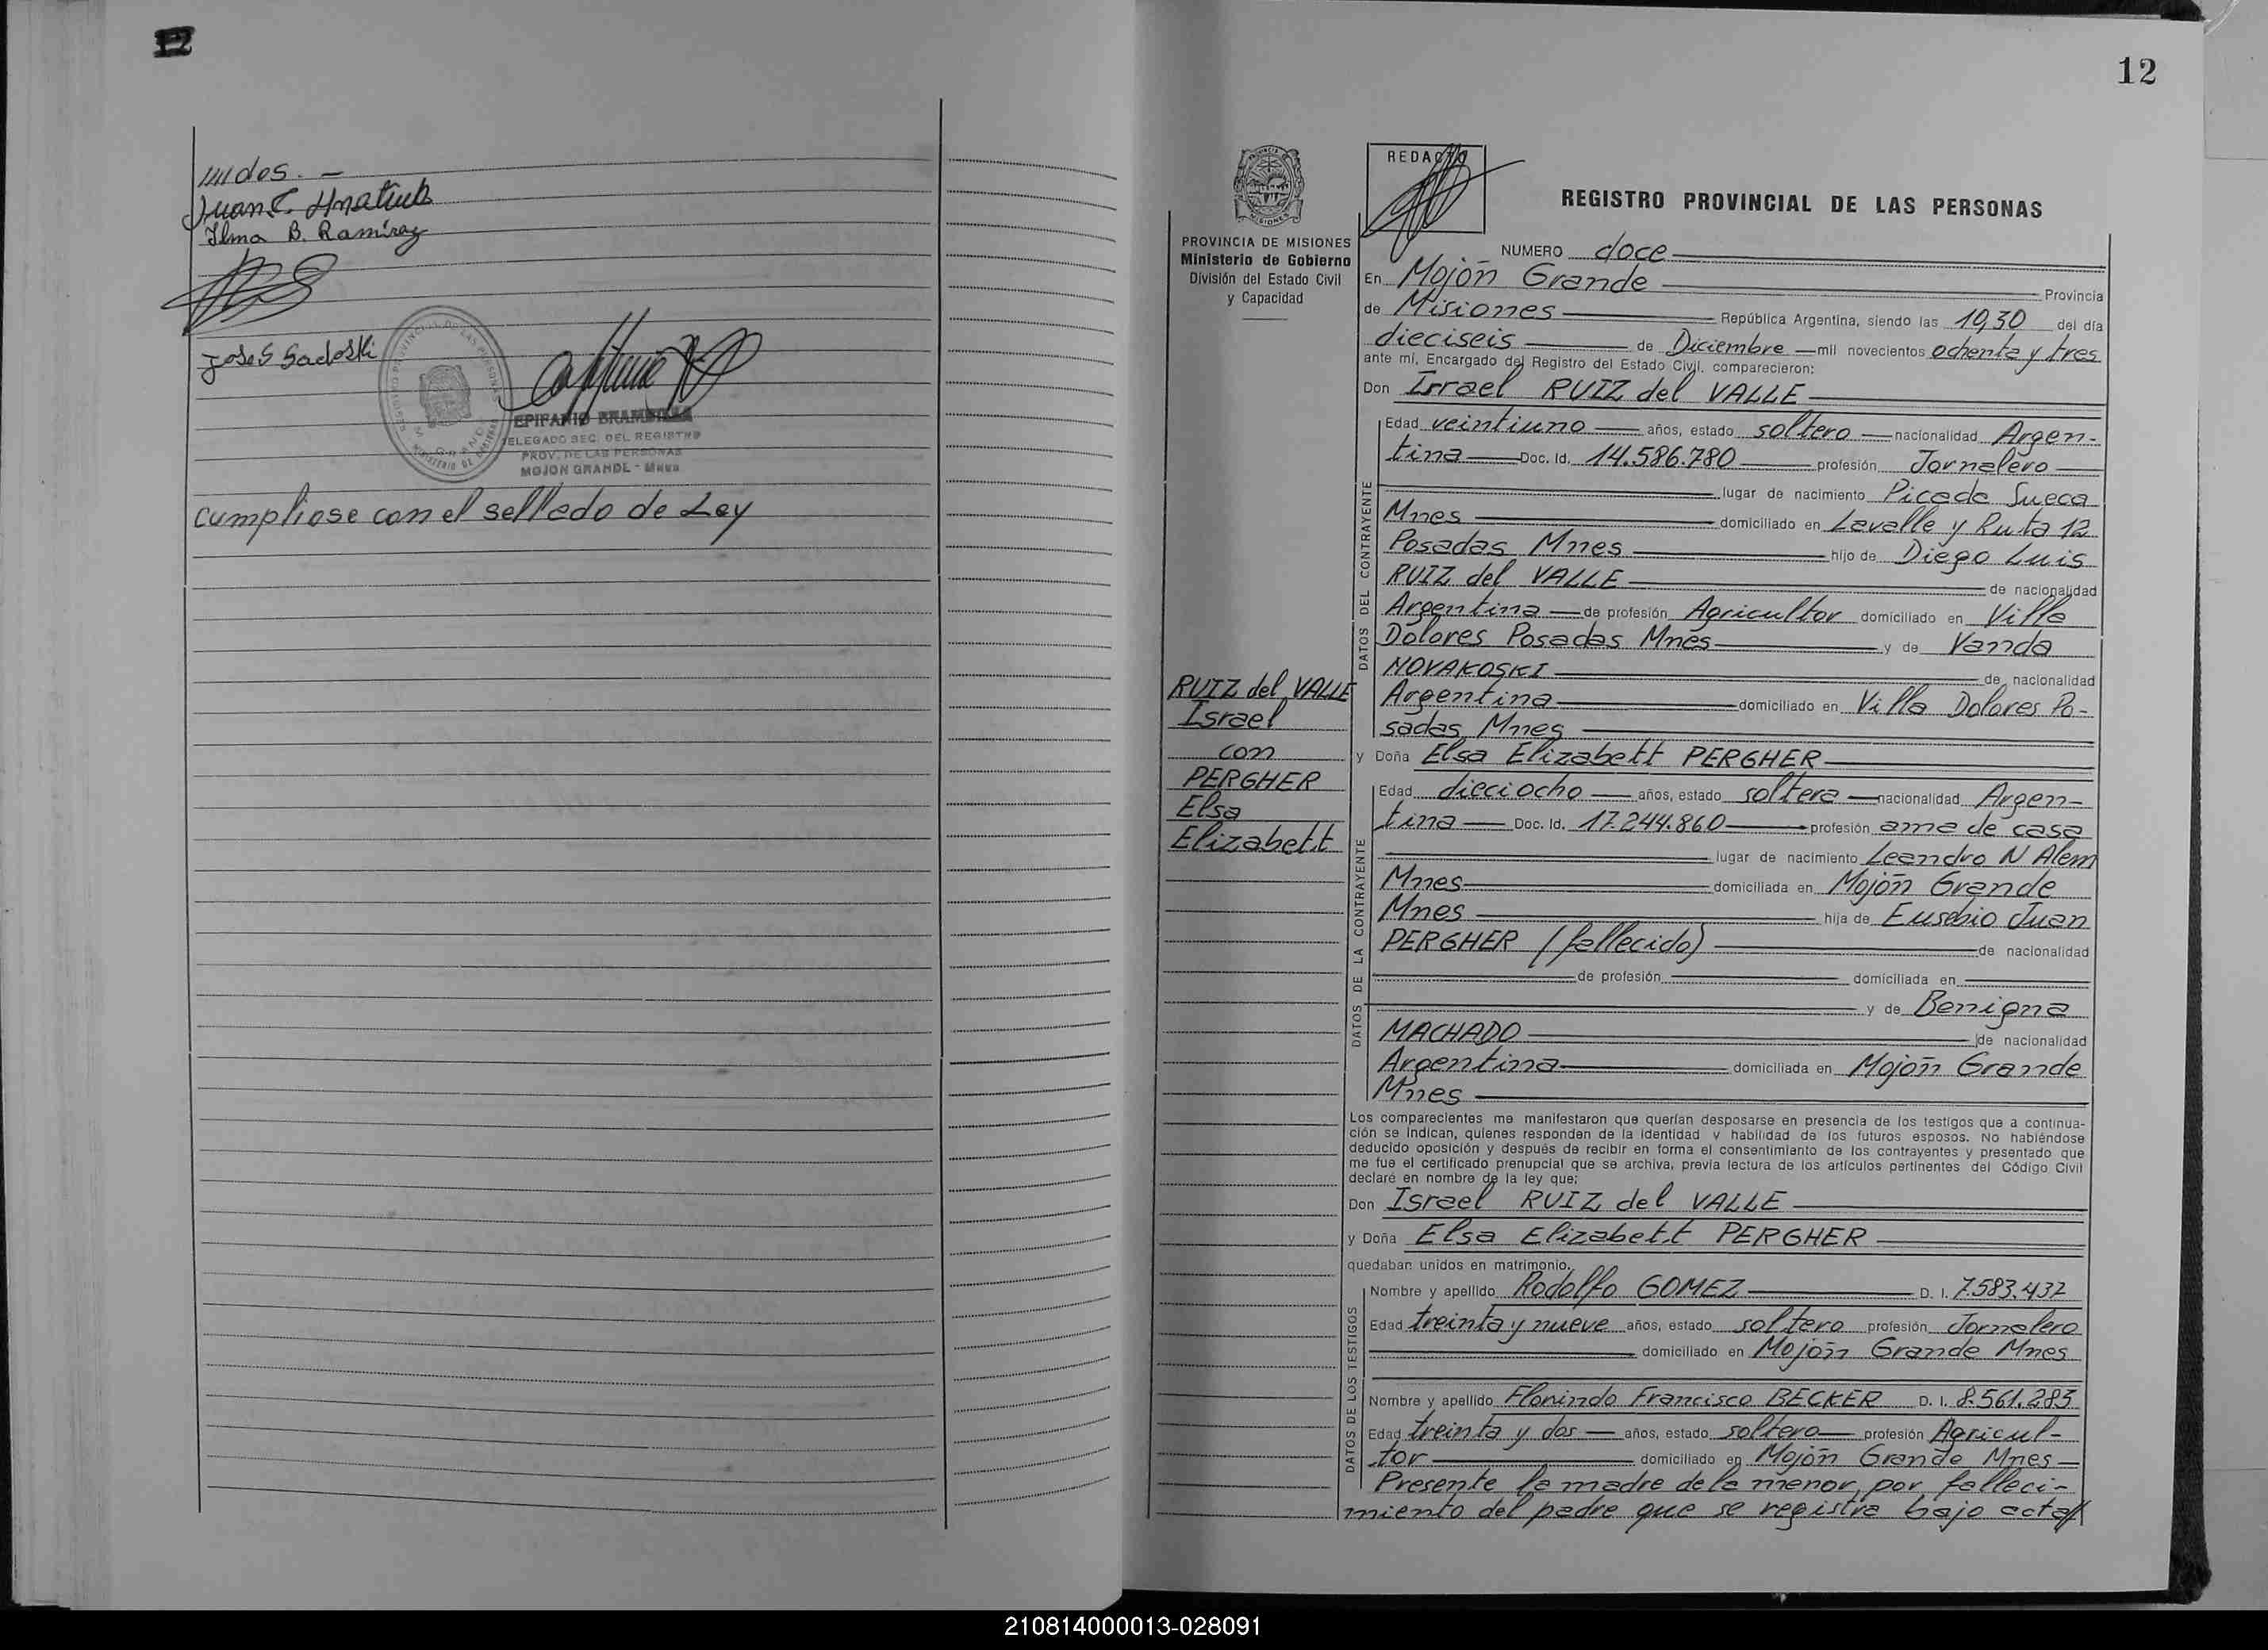 12
midos. —
Juan C. Hnatiuk
Ilma B. Ramirez
Jose S Sadoski
EPIFANIO BRAMBILLA
DELEGADO SEC. DEL REGISTRO
PROV. DE LAS PERSONAS
MOJON GRANDE - Mnes
Cumpliose con el sellado de Ley
12
REDACTO
REGISTRO PROVINCIAL DE LAS PERSONAS
PROVINCIA DE MISIONES
Ministerio de Gobierno
División del Estado Civil
y Capacidad
NUMERO doce
En Mojón Grande Provincia
de Misiones República Argentina, siendo las 10,30 del día
dieciseis de Diciembre mil novecientos ochenta y tres
ante mí, Encargado del Registro del Estado Civil, comparecieron:
Don Isrrael RUIZ del VALLE
DATOS DEL CONTRAYENTE
Edad veintiuno años, estado soltero nacionalidad Argen-
tina Doc. Id. 14.586.780 profesión Jornalero
lugar de nacimiento Picada Sueca
Mnes domiciliado en Lavalle y Ruta 12
Posadas Mnes hijo de Diego Luis
RUIZ del VALLE de nacionalidad
Argentina de profesión Agricultor domiciliado en Villa
Dolores Posadas Mnes y de Vanda
NOVAKOSKI de nacionalidad
Argentina domiciliado en Villa Dolores Po-
sadas Mnes
RUIZ del VALLE
Israel
con
PERGHER
Elsa
Elizabett
y Doña Elsa Elizabett PERGHER
DATOS DE LA CONTRAYENTE
Edad dieciocho años, estado soltera nacionalidad Argen-
tina Doc. Id. 17.244.860 profesión ama de casa
lugar de nacimiento Leandro N Alem
Mnes domiciliada en Mojón Grande
Mnes hija de Eusebio Juan
PERGHER (fallecido) de nacionalidad
de profesión domiciliada en
y de Benigna
MACHADO de nacionalidad
Argentina domiciliada en Mojón Grande
Mnes
Los comparecientes me manifestaron que querían desposarse en presencia de los testigos que a continua-
ción se indican, quienes responden de la identidad y habilidad de los futuros esposos. No habiéndose
deducido oposición y después de recibir en forma el consentimiento de los contrayentes y presentado que
me fue el certificado prenupcial que se archiva, previa lectura de los artículos pertinentes del Código Civil
declaré en nombre de la ley que:
Don Israel RUIZ del VALLE
y Doña Elsa Elizabett PERGHER
quedaban unidos en matrimonio.
DATOS DE LOS TESTIGOS
Nombre y apellido Rodolfo GOMEZ D. I. 7.583.437
Edad treinta y nueve años, estado soltero profesión Jornalero
domiciliado en Mojón Grande Mnes
Nombre y apellido Florindo Francisco BECKER D. I. 8.561.283
Edad treinta y dos años, estado soltero profesión Agricul-
tor domiciliado en Mojón Grande Mnes
Presente la madre de la menor, por falleci-
miento del padre que se registra bajo acta//
210814000013-028091